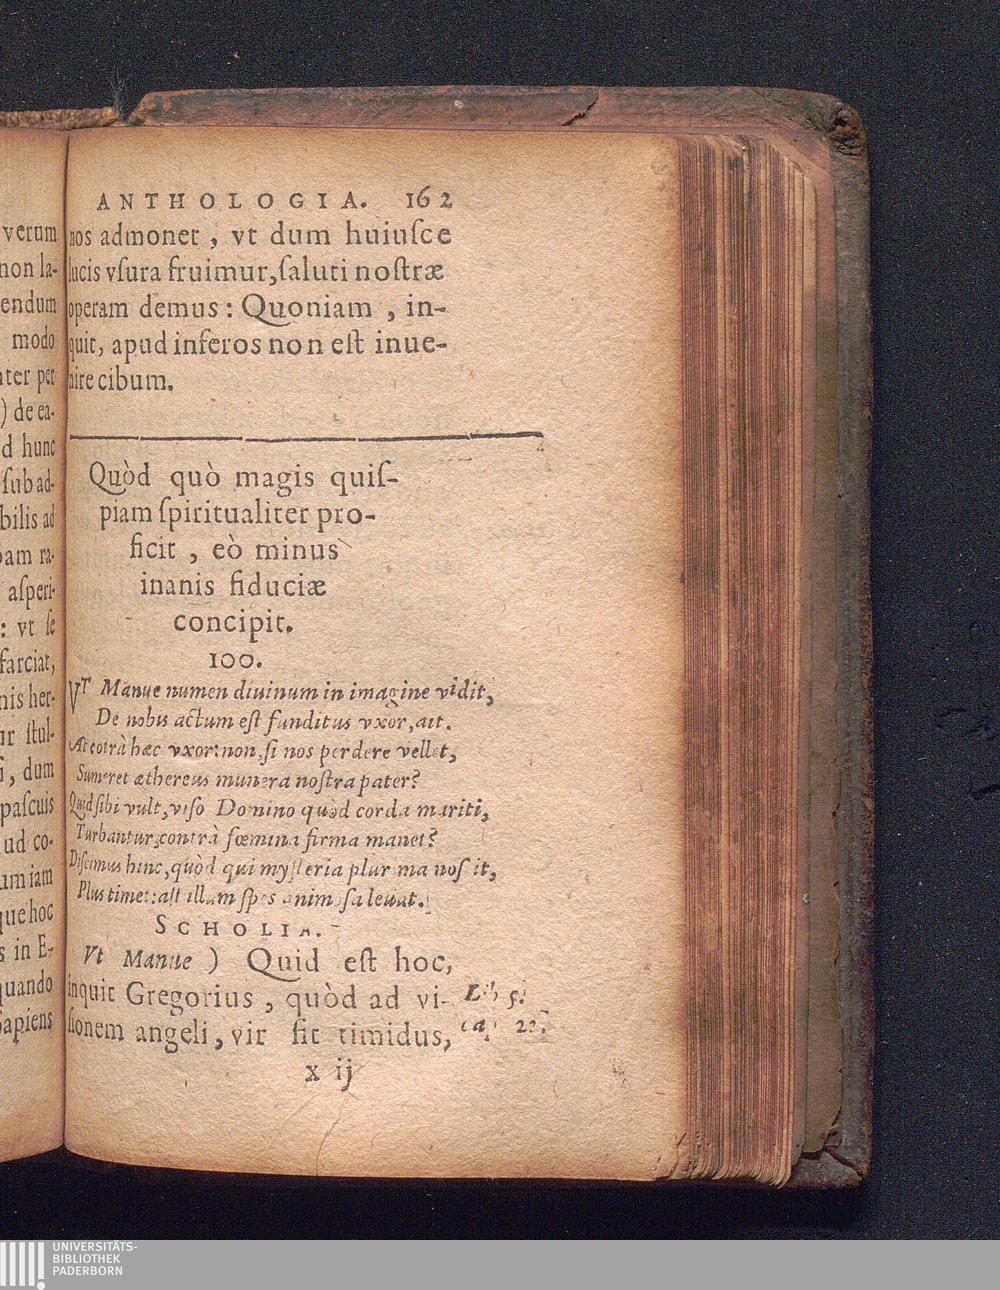 verum
non la-
endum
modo
ater per
) de ea-
d hunc
ſub ad-
bilis ad
bam ra-
aſperi-
: vt ſe
farciat,
nis her-
ur ſtul-
i, dum
paſcuis
ud co-
um iam
que hoc
s in E-
quando
Sapiens
ANTHOLOGIA. 162
nos admonet, vt dum huiuſce
lucis vſura fruimur, ſaluti noſtræ
operam demus: Quoniam, in-
quit, apud inferos non eſt inue-
nire cibum.
Quòd quò magis quiſ-
piam ſpiritualiter pro-
ficit, eò minus
inanis fiduciæ
concipit.
100.
VT Manue numen diuinum in imagine vidit,
De nobis actum eſt funditus vxor, ait.
At cōtrà hæc vxor: non, ſi nos perdere vellet,
Sumeret æthereus munera noſtra pater?
Quid ſibi vult, viſo Domino quòd corda mariti,
Turbantur, contrà fœmina firma manet?
Diſcimus hinc, quòd qui myſteria plurima noſcit,
Plus timet: aſt illum ſpes animoſa leuat.
SCHOLIA.
Vt Manue ) Quid eſt hoc,
inquit Gregorius, quòd ad vi-
ſionem angeli, vir ſit timidus,
Lib 5.
ca. 22.
x ij
UNIVERSITÄTS-
BIBLIOTHEK
PADERBORN